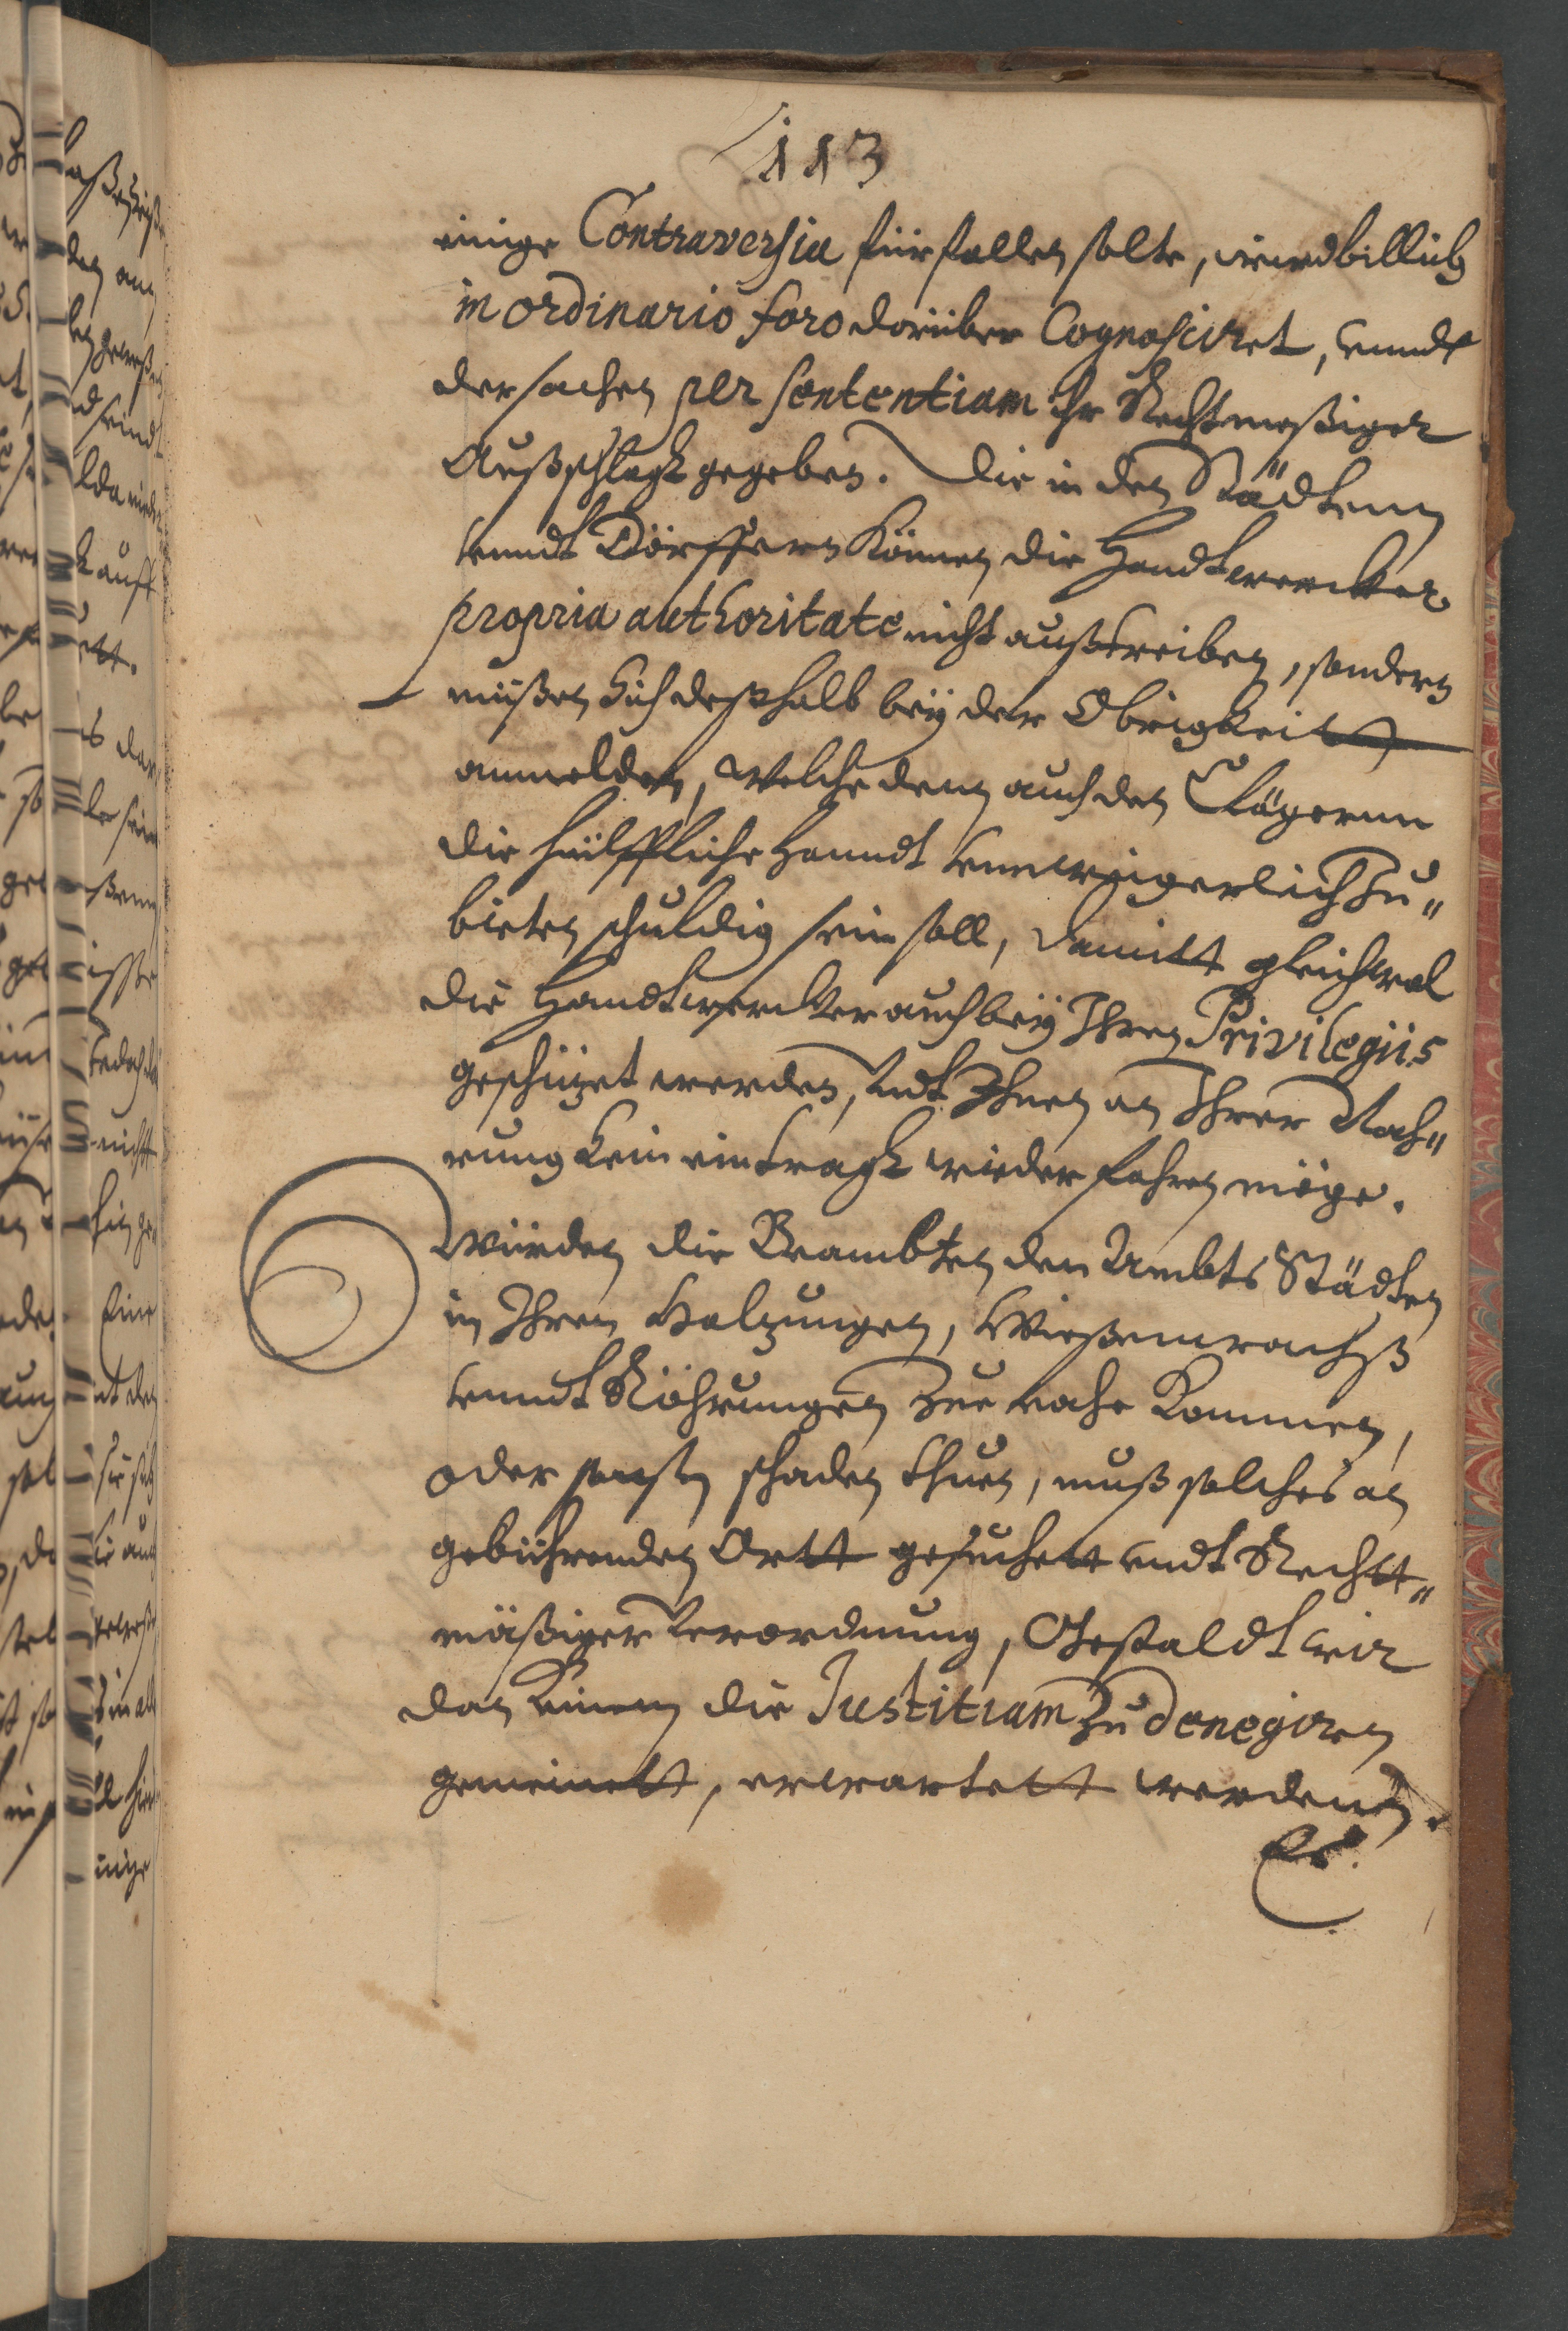 113
einige Contraversia fürfallen solte, wirdt billich
in ordinario foro darüber Cognosciret, unndt
der sachen per sententiam ihr Rechtmeßiger
Außschlagk gegeben. Die in den Städtenn
unndt Dörffern Können die Handtwercker
propria authoritate nicht außtreiben, sondern
müßen Sich deßhalb bey der Obrigkeitt
anmelden, welche denn auch den Clägernn
die hülffliche Handt unweigerlich Zu„
bieten schuldig sein soll, damitt gleichwol
die Handtwercker auch bey Ihren Privilegiis
geschüzet werden, undt Ihnen an Ihrer Nah„
rung kein eintragk wieder fahren möge.
Würden die Beambten den Ambts Städten
in Ihren Holzungen, Wießenwachß
unndt Röhrungen Zue nahe Kommen,
oder sonsten schaden thuen, muß solches an
gebührenden Ortt gesuchett undt Rechtt„
mäßiger Verordnung, Gestaldt wir
dan keinem die Justitiam Zu denegiren
gemeinett, erwartett werdenn.
Es